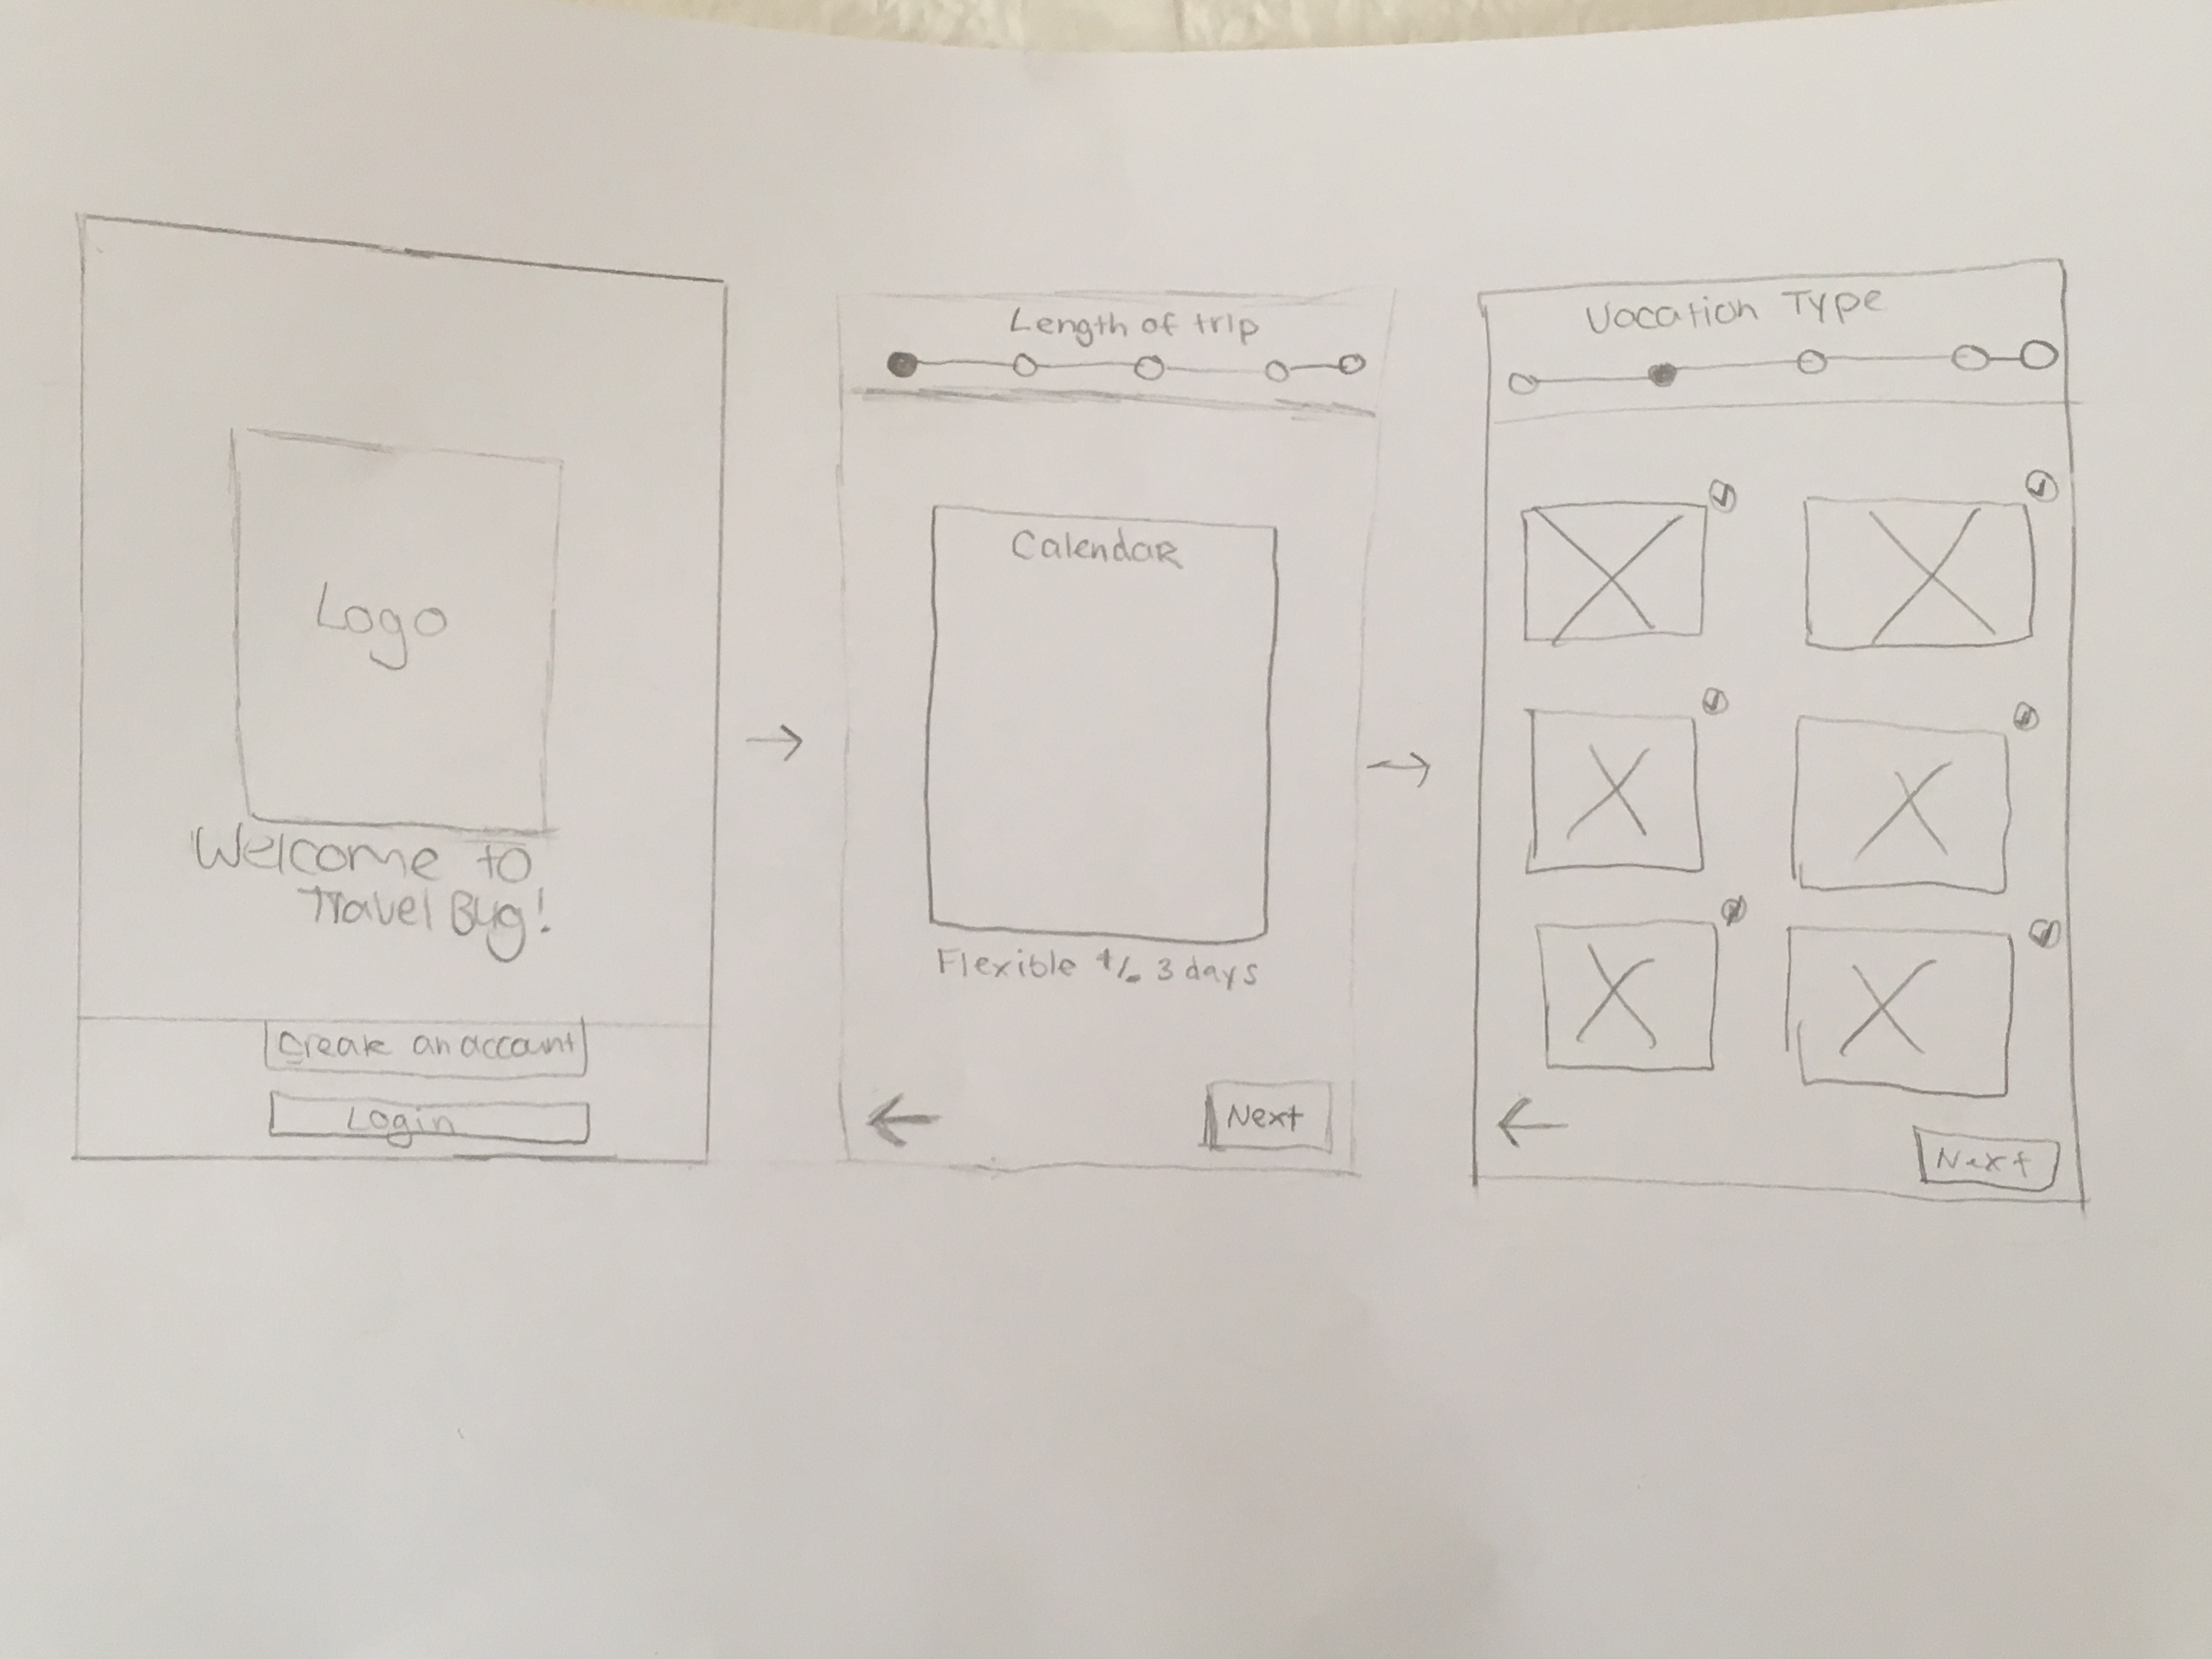 Logo
Welcome to
Travel Bug!
Create an account
Login
Length of trip
Calendar
Flexible +/- 3 days
Next
Vacation Type
Next